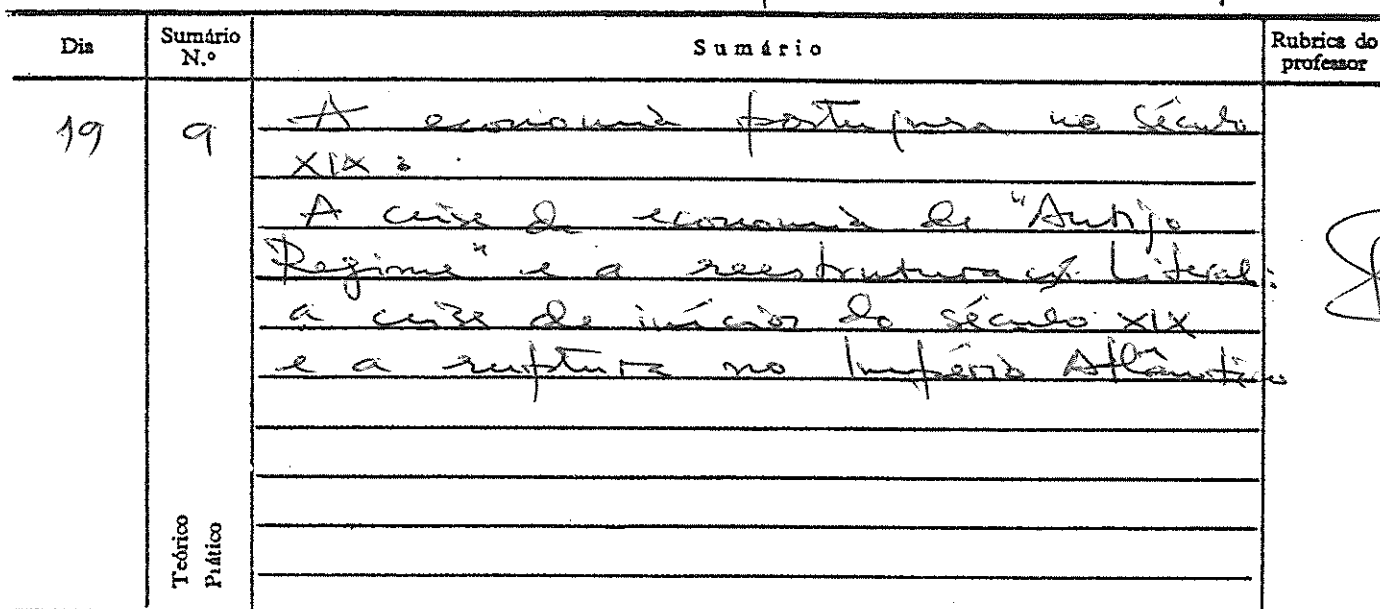 Dia Sumário N.º Sumário Rubrica do professor
19 9 A economia portuguesa no século
XIX:
A crise da economia de "Antigo
Regime" e a reestruturação Liberal:
a crise de inícios do século XIX
e a ruptura no Império Atlântico
Teórico
Prático